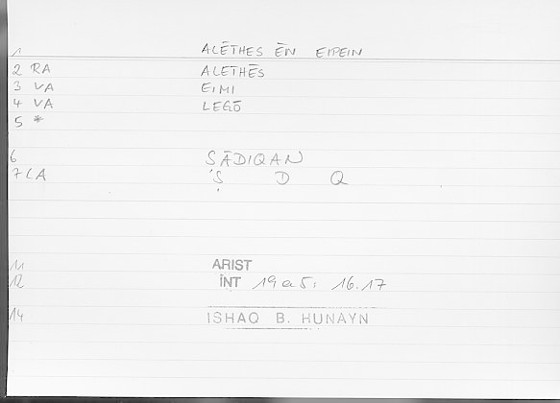 1 ALĒTHES ĒN EIPEIN
2 RA ALETHĒS
3 VA EIMI
4 VA LEGŌ
5 *
6 ṢĀDIQAN
7 CA Ṣ D Q
11 ARIST
12 INT 19 a 5: 16.17
14 ISHAQ B. HUNAYN